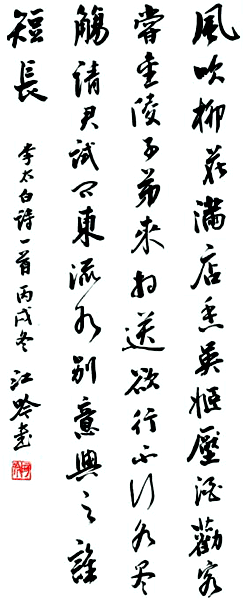 風吹柳花滿店香吳姬壓酒勸客
嘗金陵子弟來相送欲行不行各尽
觴請君試問東流水別意與之誰
短長
李太白詩一首丙戌冬江吟書